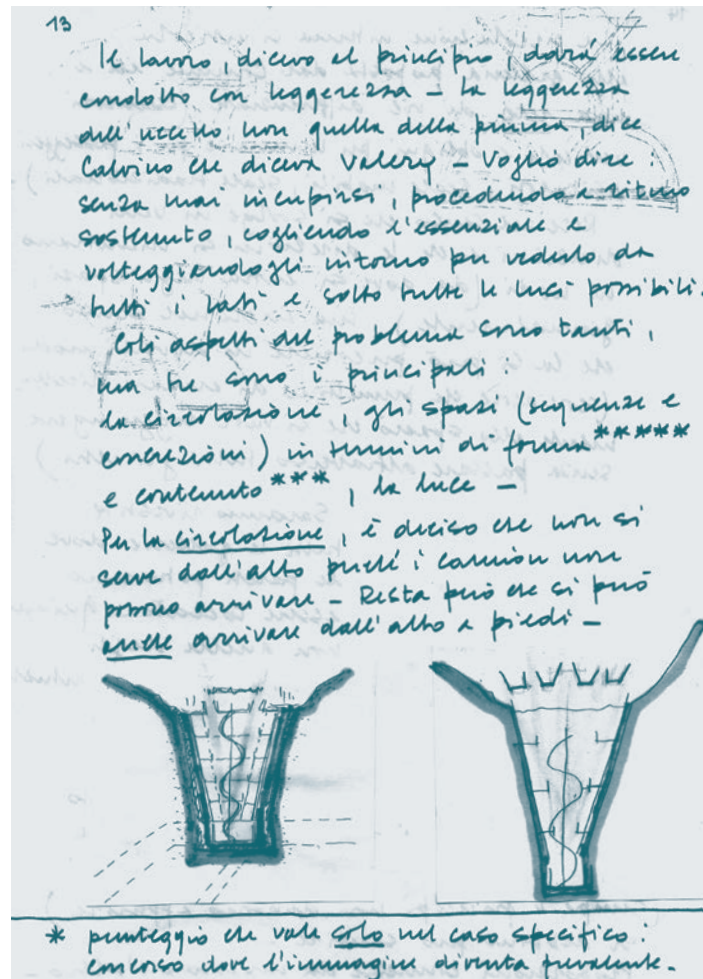 13
Il lavoro, dicevo al principio, dovrà essere
condotto con leggerezza – la leggerezza
dell'uccello non quella della piuma, dice
Calvino che diceva Valery – Voglio dire:
senza mai incupirsi, procedendo a ritmo
sostenuto, cogliendo l'essenziale e
volteggiandogli intorno per vederlo da
tutti i lati e sotto tutte le luci possibili.
Gli aspetti del problema sono tanti,
ma tre sono i principali
la circolazione, gli spazi (sequenze e
concrezioni) in termini di forma*****
e contenuto***, la luce –
Per la circolazione, è deciso che non si
serve dall'alto perché i camion non
possono arrivare – Resta però che si può
anche arrivare dall'alto a piedi –
* punteggio che vale solo nel caso specifico:
concorso dove l'immagine diventa prevalente.